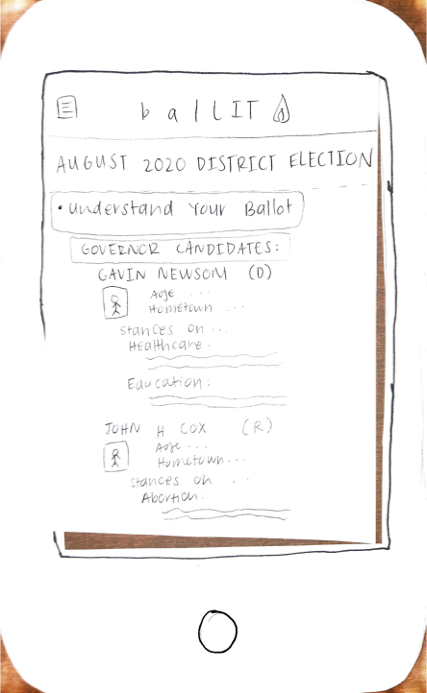 ballIT
AUGUST 2020 DISTRICT ELECTION
• understand Your Ballot
GOVERNOR CANDIDATES:
GAVIN NEWSOM (D)
Age ...
Hometown ...
Stances on ...
Healthcare.
Education:
JOHN H. COX (R)
Age ...
Hometown...
Stances on ...
Abortion.